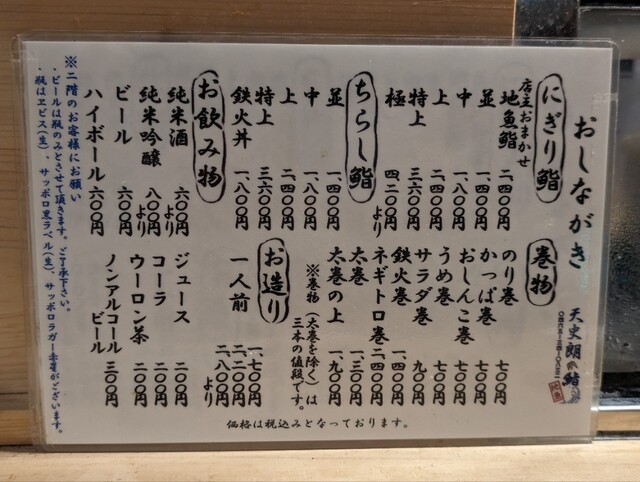 おしながき
天史朗鮨
にぎり鮨
店主おまかせ
地魚鮨 二、四〇〇円
並 一、四〇〇円
中 一、八〇〇円
上 二、四〇〇円
特上 三、六〇〇円
極 四、二〇〇円より
ちらし鮨
並 一、四〇〇円
中 一、八〇〇円
上 二、四〇〇円
特上 三、六〇〇円
鉄火丼 一、八〇〇円
巻物
のり巻 七〇〇円
かっぱ巻 七〇〇円
おしんこ巻 七〇〇円
うめ巻 七〇〇円
サラダ巻 九〇〇円
鉄火巻 一、四〇〇円
ネギトロ巻 二、四〇〇円
太巻 一、三〇〇円
太巻の上 一、九〇〇円
※巻物(太巻を除く)は
三本の値段です。
お造り
一人前 一、七〇〇円
二、二〇〇円
二、八〇〇円より
お飲み物
純米酒 六〇〇円より
純米吟醸 八〇〇円より
ビール 六〇〇円
ハイボール 六〇〇円
ジュース 二〇〇円
コーラ 二〇〇円
ウーロン茶 二〇〇円
ノンアルコール
ビール 三〇〇円
※二階のお客様にお願い
・ビールは瓶のみとさせて頂きます。ご了承下さい。
・瓶はヱビス(生)、サッポロ黒ラベル(生)、サッポロラガー赤星がございます。
価格は税込みとなっております。